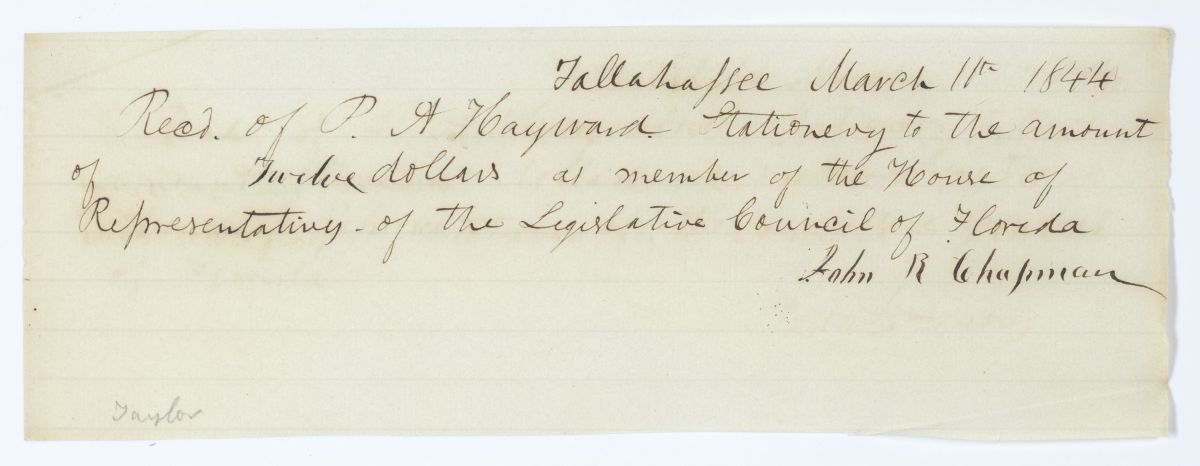 Tallahassee March 11th 1844
Recd. of P. A Hayward Stationery to the amount
of Twelve dollars as member of the House of
Representatives of the Legislative Council of Florida
John R Chapman
Taylor